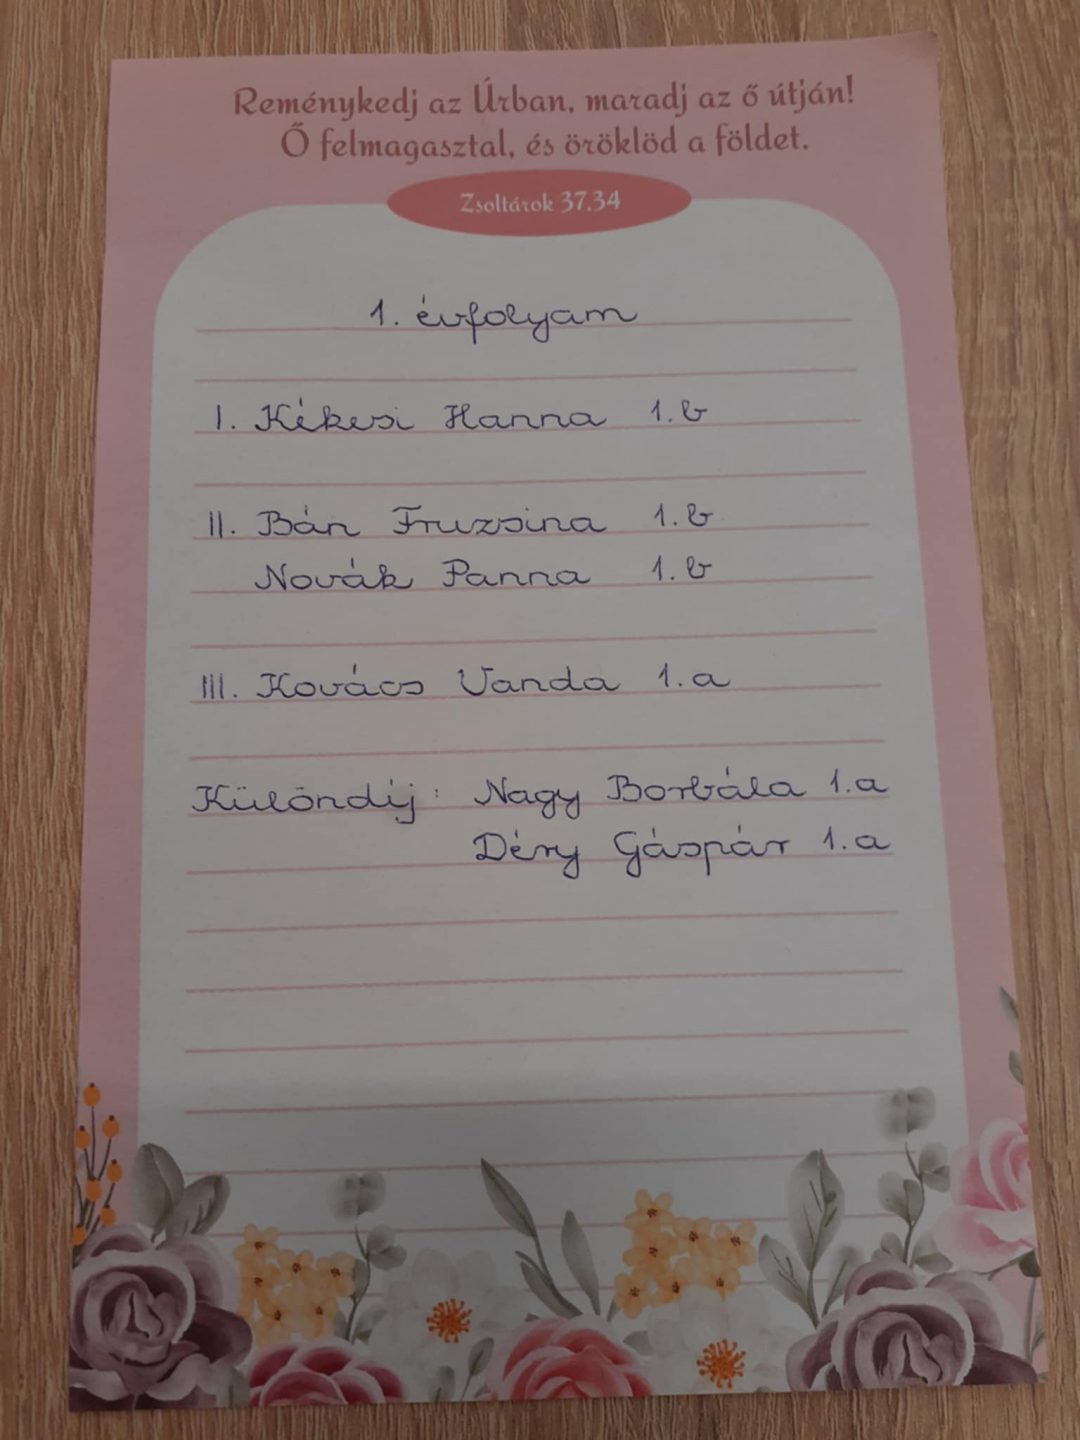 Reménykedj az Úrban, maradj az ő útján!
Ő felmagasztal, és öröklöd a földet.
Zsoltárok 37.34
1. évfolyam
I. Kékesi Hanna 1.b
II. Bán Fruzsina 1.b
Novák Panna 1.b
III. Kovács Vanda 1.a
Különdíj: Nagy Borbála 1.a
Déry Gáspár 1.a